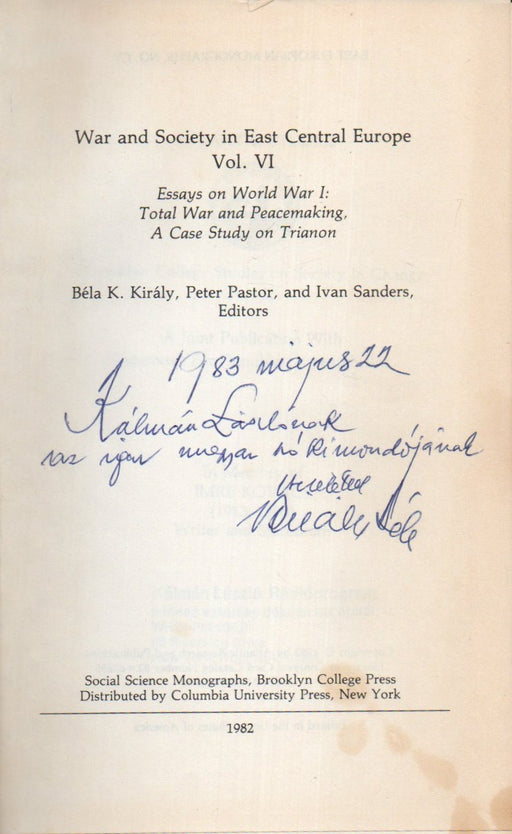 War and Society in East Central Europe
Vol. VI
Essays on World War I:
Total War and Peacemaking,
A Case Study on Trianon
Béla K. Király, Peter Pastor, and Ivan Sanders,
Editors
1983 május 22
Kálmán Lászlónak
az igaz magyar szó kimondójának
szeretettel
Király Béla
Social Science Monographs, Brooklyn College Press
Distributed by Columbia University Press, New York
1982